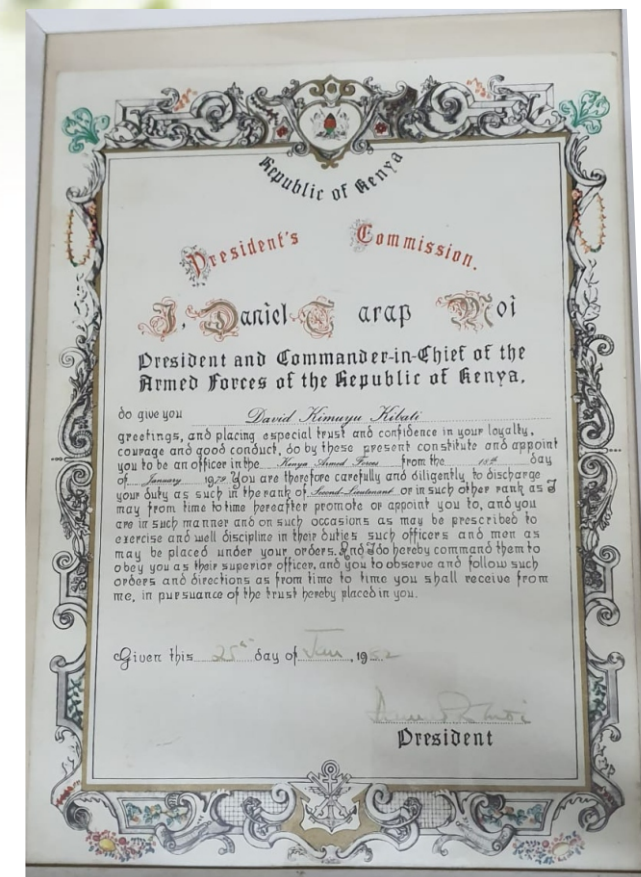 Republic of Kenya
President's Commission.
I, Daniel T arap Moi
President and Commander-in-Chief of the
Armed Forces of the Republic of Kenya,
do give you David Kimuyu Kibati
greetings, and placing especial trust and confidence in your loyalty,
courage and good conduct, do by these present constitute and appoint
you to be an officer in the Kenya Armed Forces from the 18th day
of January 1979 You are therefore carefully and diligently to discharge
your duty as such in the rank of Second-Lieutenant or in such other rank as I
may from time to time hereafter promote or appoint you to, and you
are in such manner and on such occasions as may be prescribed to
exercise and well discipline in their duties such officers and men as
may be placed under your orders. And I do hereby command them to
obey you as their superior officer, and you to observe and follow such
orders and directions as from time to time you shall receive from
me, in pursuance of the trust hereby placed in you.
Given this 25th day of 19
President